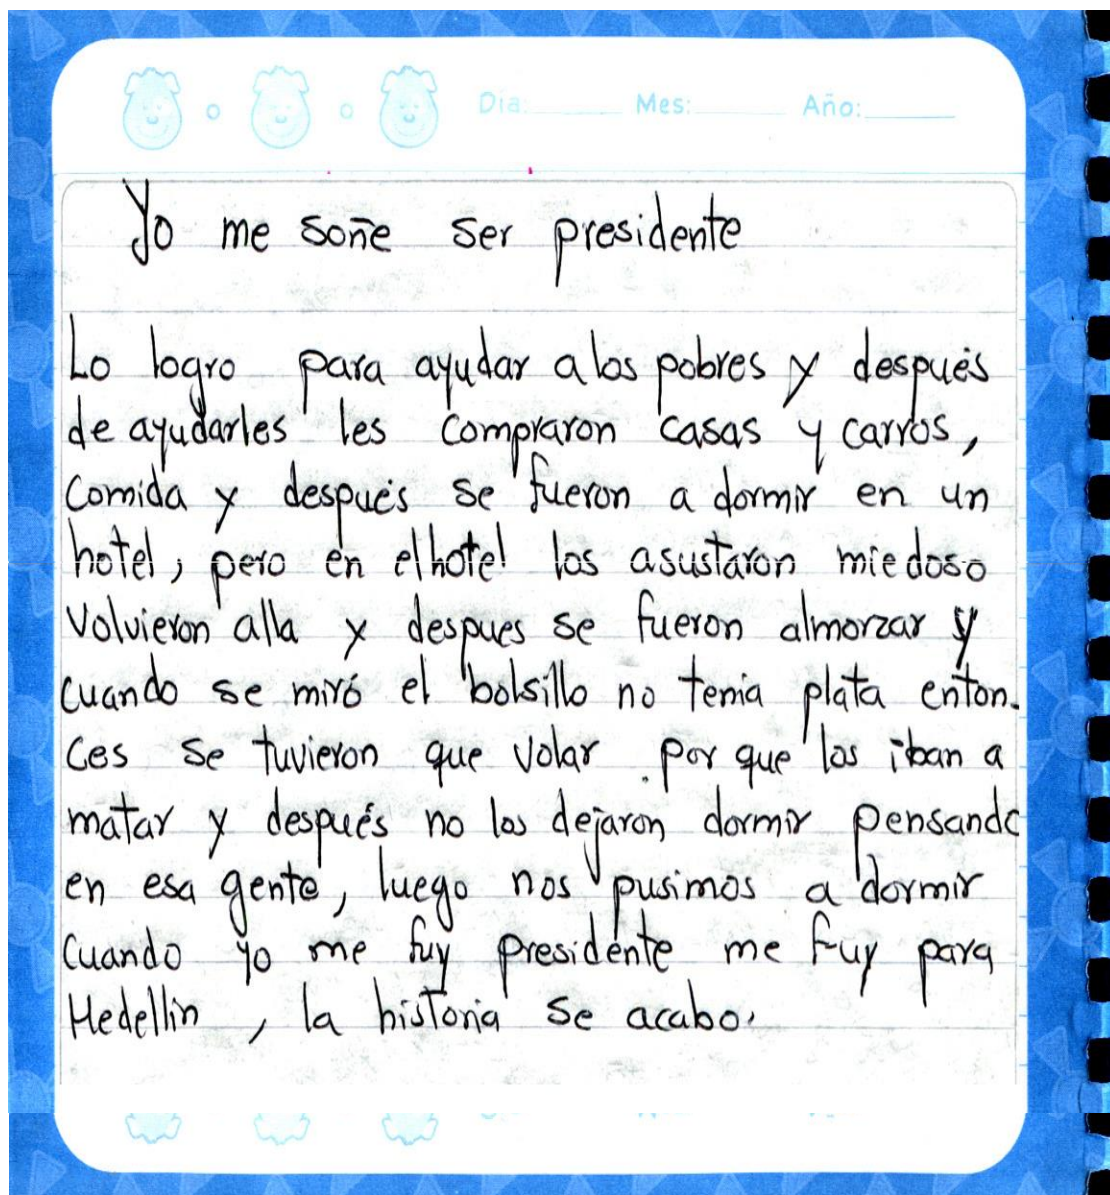 Día: Mes: Año:
Yo me soñe ser presidente
Lo logro para ayudar a los pobres y después
de ayudarles les compraron casas y carros,
comida y después se fueron a dormir en un
hotel, pero en el hotel los asustaron miedoso
Volvieron alla y despues se fueron almorzar y
cuando se miró el bolsillo no tenia plata enton.
ces se tuvieron que volar . por que los iban a
matar y después no los dejaron dormir pensando
en esa gente, luego nos pusimos a dormir
Cuando yo me fuy presidente me fuy para
Medellin, la historia se acabo.